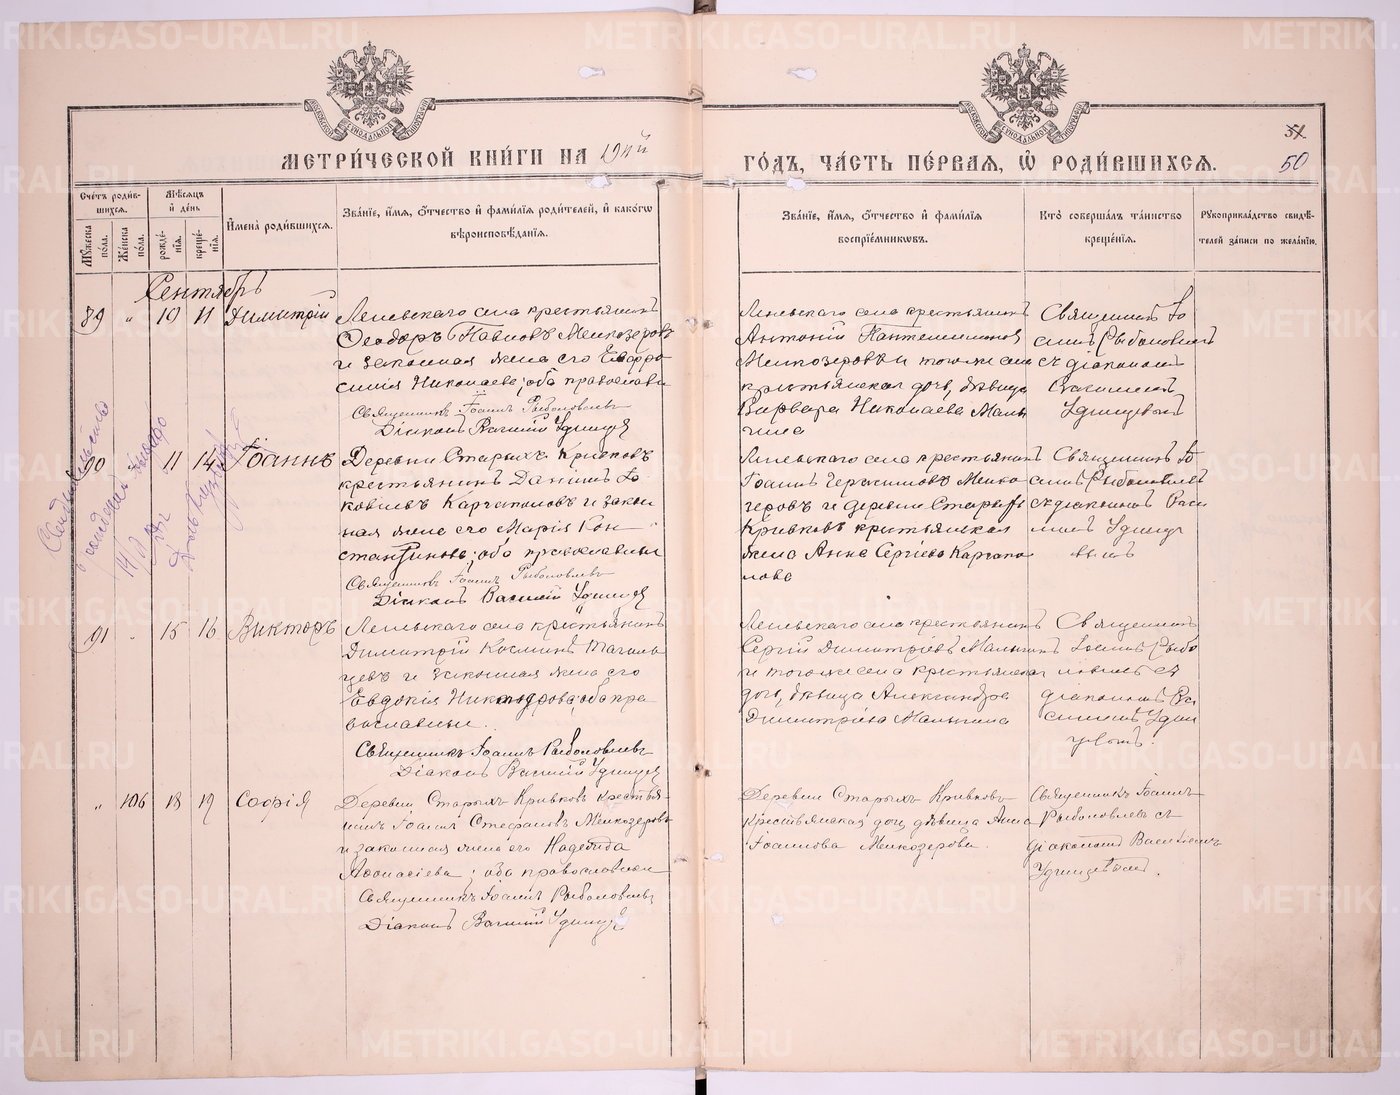 МЕТРИ́ЧЕСКОЙ КНИ́ГИ НА 1911й
ГО́ДЪ, ЧА́СТЬ ПЕ́РВАЯ, Ѡ҆ РОДИ́ВШИХСЯ.
51
50
Сче́тъ роди́вшихся.
Му́жеска по́ла.
Же́нска по́ла.
Мѣ́сяцъ и҆ де́нь
рожде́нїя.
креще́нїя.
И҆мена̀ роди́вшихся.
Зва́нїе, и҆́мя, ѻ҆́тчество и҆ фами́лїя роди́телей, и҆ како́гѡ
вѣроисповѣ́данїя.
Зва́нїе, и҆́мя, ѻ҆́тчество и҆ фами́лїя
воспрїе́мникѡвъ.
Кто̀ соверша́лъ та́инство
креще́нїя.
Рꙋкоприкла́дство свидѣ́-
телей за́писи по жела́нїю.
Сентябрь
89 " 10 11 Димитрій
крестьянинъ
Ѳеодоръ Павловъ Мелкозеровъ
и законная жена его Евфро
синія Николаева; оба православн
Священникъ Іоаннъ Рыболовлевъ
Діаконъ Василій Удинцев
крестьянинъ
Антоній Пантелеимонов
Мелкозеровъ и того же села
крестьянская дочь, дѣвица
Варвара Николаева Малы
гина
Священникъ Іо
аннъ Рыболовлевъ
съ діакономъ
Василіемъ
Удинцевымъ
90 11 14 Іоаннъ
Деревни Старыхъ Кривковъ
крестьянинъ Даніилъ Іа
ковлевъ Каргаполовъ и закон
ная жена его Марія Кон
стантинова; оба православны
Священникъ Іоаннъ Рыболовлевъ
Діаконъ Василій Удинцев
крестьянинъ
Іоаннъ Герасимовъ Мелко
зеровъ и деревни Старыхъ
Кривковъ крестьянская
жена Анна Сергіева Каргапо
лова
Священникъ Іо
аннъ Рыболовлевъ
съ діакономъ Васи
ліемъ Удинце
вымъ
91 " 15 16 Викторъ
крестьянинъ
Димитрій Космин
и законная жена его
Евдокія Никандрова; оба пра
вославны.
Священникъ Іоаннъ Рыболовлевъ
Діаконъ Василій Удинцев
крестьянинъ
Сергій Димитріевъ Малыгинъ
и того же села крестьянская
дочь, дѣвица Александра
Димитріева Малыгина
Священникъ
Іоаннъ Рыбо
ловлевъ съ
діакономъ Ва
силіемъ Удин
цевымъ.
" 106 18 19 Софія
Деревни Старыхъ Кривковъ крестья-
нинъ Іоаннъ Стефановъ Мелкозеровъ
и законная жена его Надежда
Аѳонасіева; оба православны
Священникъ Іоаннъ Рыболовлевъ
Діаконъ Василій Удинцев
Деревни Старыхъ Кривковъ
крестьянская дочь дѣвица Анна
Іоаннова Мелкозерова.
Священникъ Іоаннъ
Рыболовлевъ съ
діакономъ Василіемъ
Удинцевымъ.
METRIKI.GASO-URAL.RU